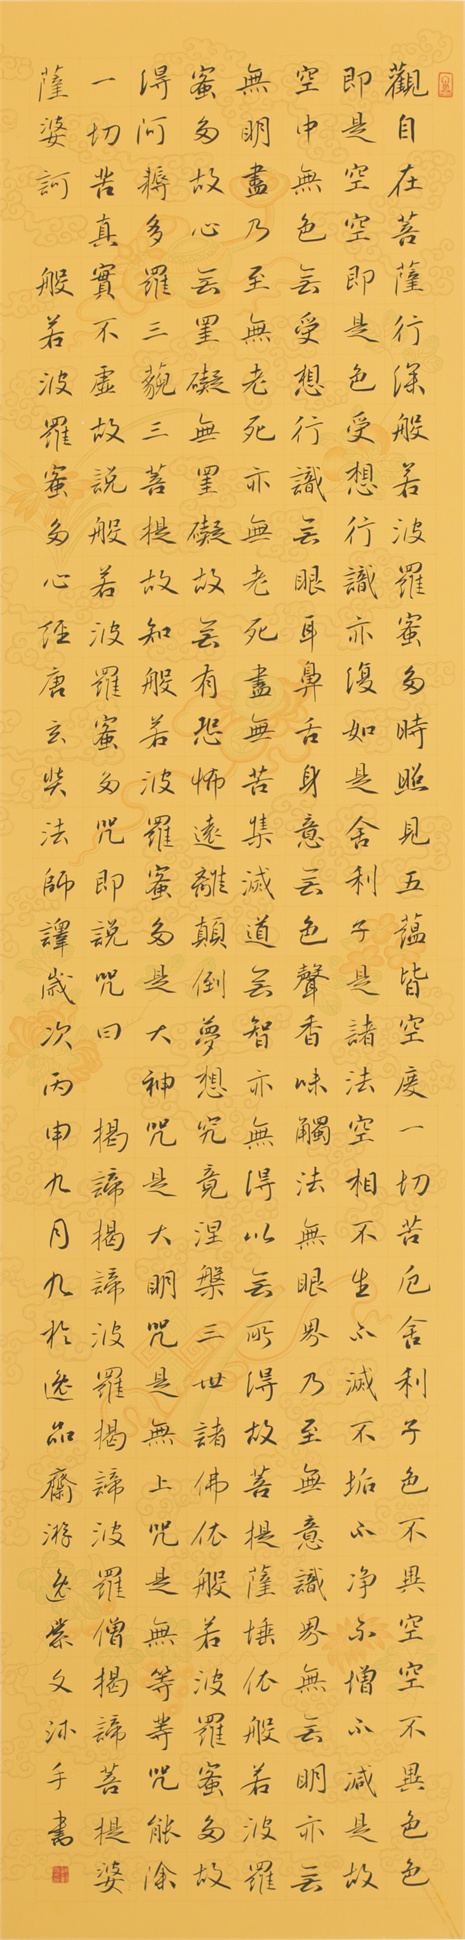 觀自在菩薩行深般若波羅蜜多時照見五蘊皆空度一切苦厄舍利子色不異空空不異色色
即是空空即是色受想行識亦復如是舍利子是諸法空相不生不滅不垢不净不增不減是故
空中無色無受想行識無眼耳鼻舌身意無色聲香味觸法無眼界乃至無意識界無無明亦無
無明盡乃至無老死亦無老死盡無苦集滅道無智亦無得以無所得故菩提薩埵依般若波羅
蜜多故心無罣礙無罣礙故無有恐怖遠離顛倒夢想究竟涅槃三世諸佛依般若波羅蜜多故
得阿耨多羅三藐三菩提故知般若波羅蜜多是大神咒是大明咒是無上咒是無等等咒能除
一切苦真實不虛故說般若波羅蜜多咒即說咒曰 揭諦揭諦波羅揭諦波羅僧揭諦菩提婆
薩婆訶 般若波羅蜜多心經唐玄奘法師譯歲次丙申九月九於逸品齋游逸紫文沐手書